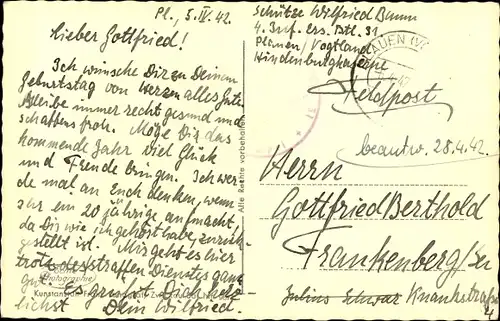 Pl., 5.IV.42.
Lieber Gottfried!
Ich wünsche Dir zu Deinem
Geburtstag von Herzen alles Gute.
Bleibe immer recht gesund und
schaffensfroh. Möge Dir das
kommende Jahr viel Glück
und Freude bringen. Ich wer-
de mal an Euch denken, wenn
Ihr ein 20 jährige aufmacht,
da Dir wie ich gehört habe, zurück-
gestellt ist. Mir geht es hier
trotz des straffen Dienstes ganz
gut. Es grüßt Dich herz-
lichst Dein Wilfried.
Kunstanstalt
Alle Rechte vorbehalten
Schütze Wilfried
4. Inf. Ers. Btl. 31
Plauen / Vogtland
Hindenburgkaserne
PLAUEN (V
Feldpost
beantw. 28.4.42.
Herrn
Gottfried Berthold
Frankenberg/Sa
Julius